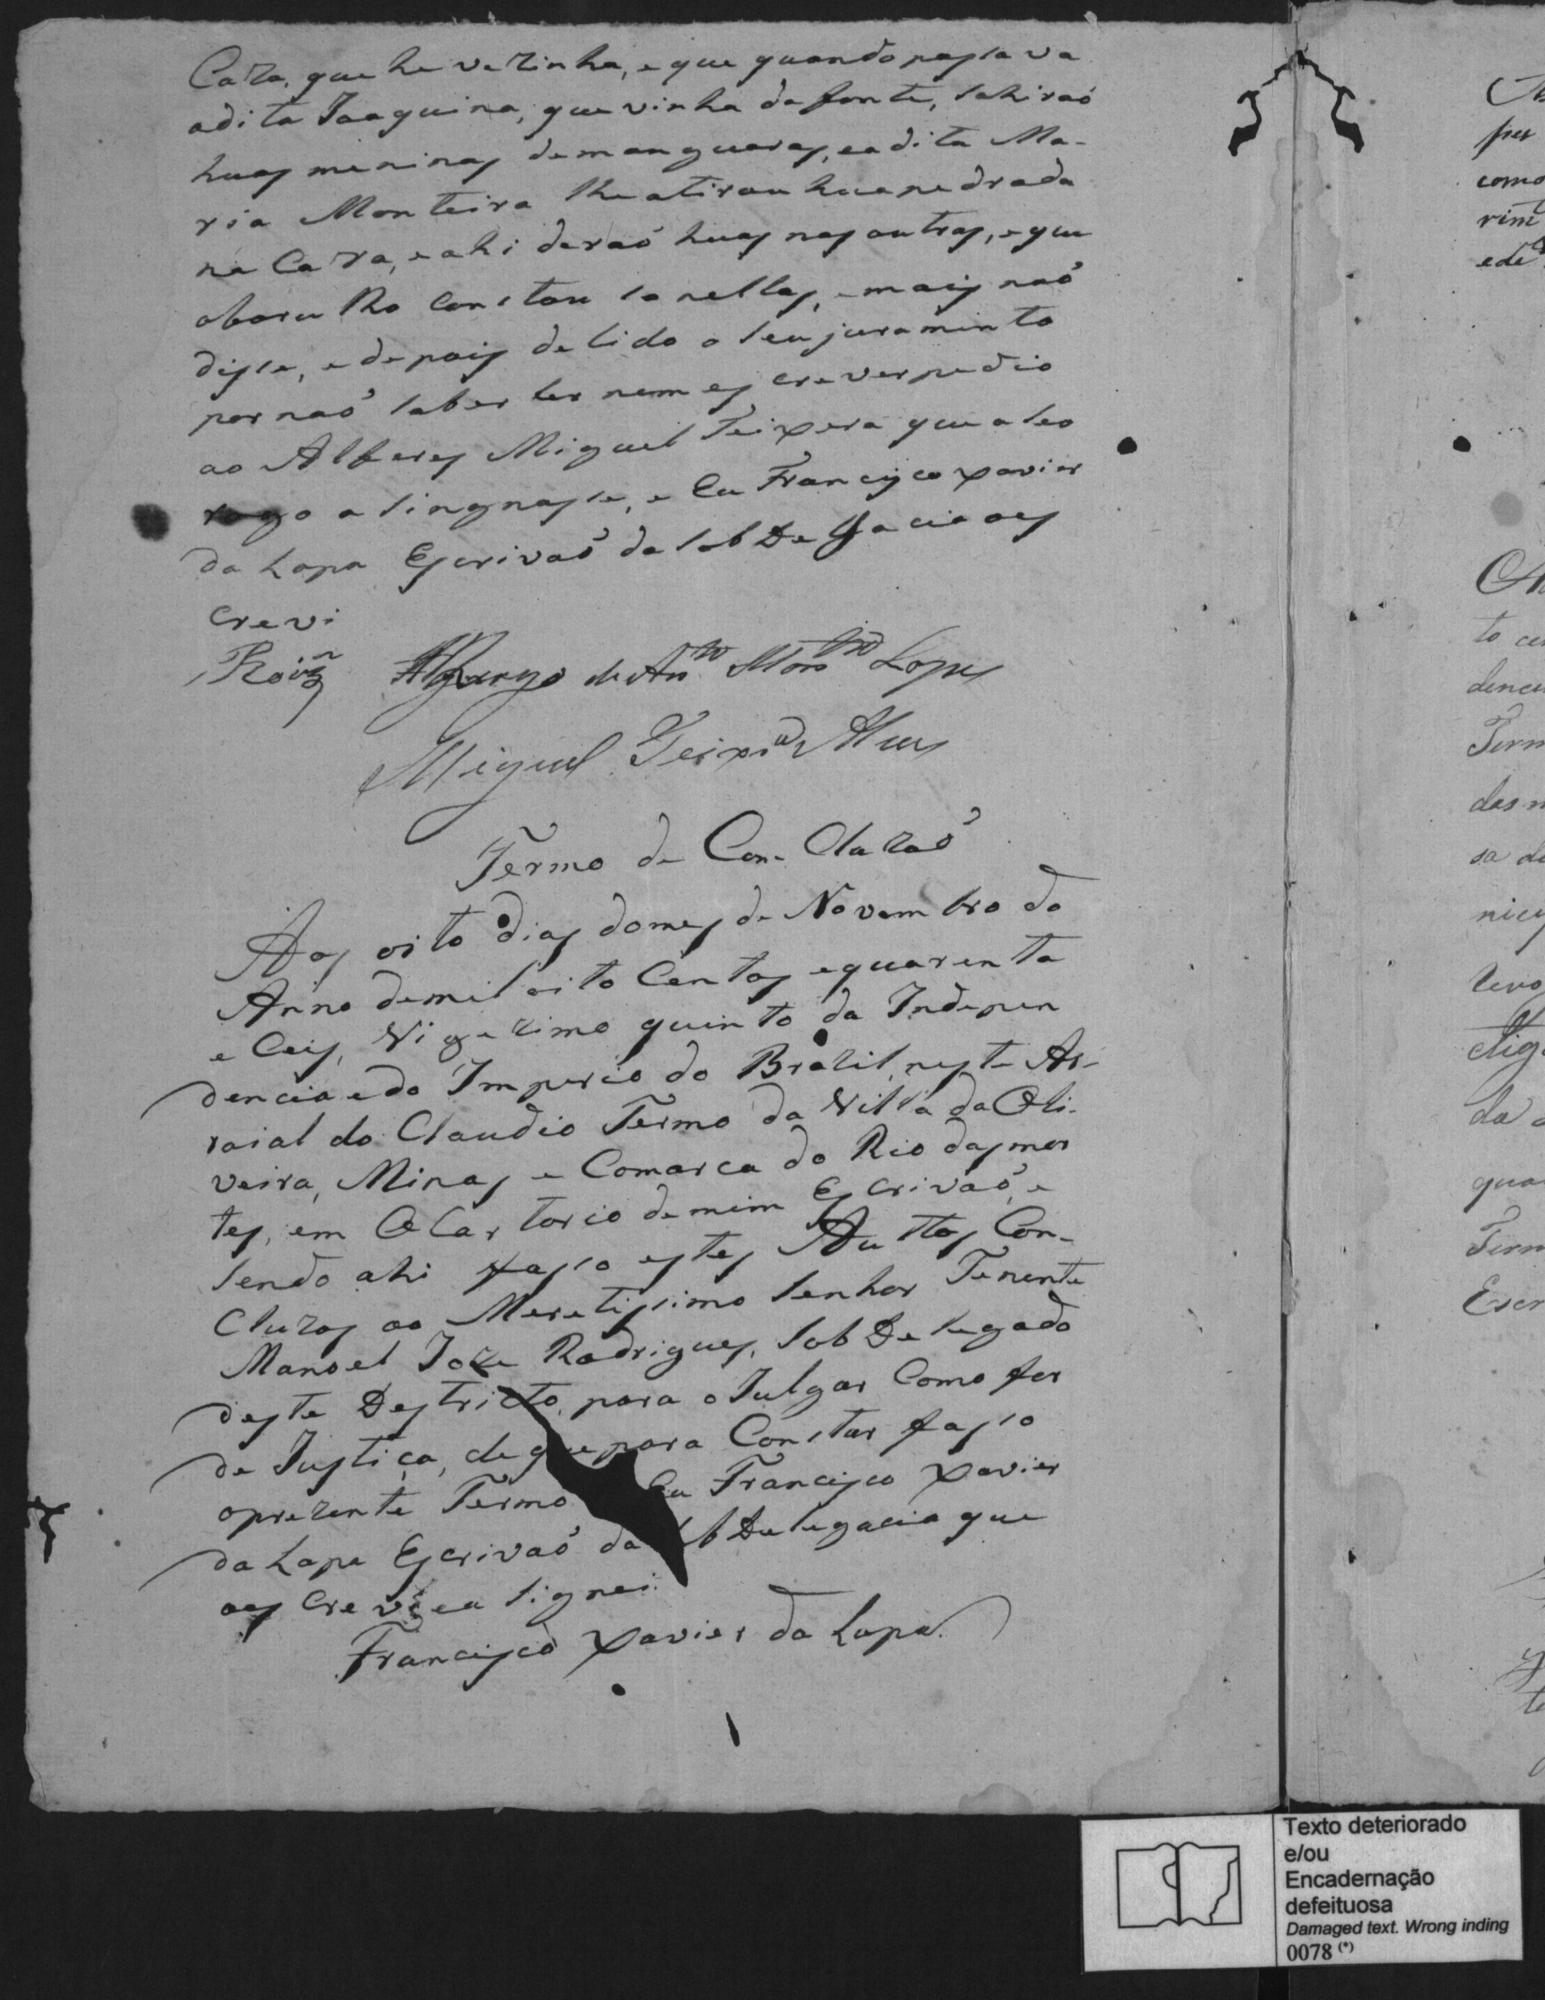 Caza, que he vezinha, e que quando passava
adita Joaquina, que vinha da fonte, sahiraó
huas meninas de manguaras, e a dita Ma-
ria Monteira lhe atirou hua pedrada
na Cara, e ahi deraó huas nas outras, e que
obarulho constou so nellas, e mais naó
disse, e depois de lido o seu juraminto
por naó saber ler nem escrever pedio
ao Alferes Miguel Teixera que a seo
rogo asingnasse, e Eu Francisco Xavier
da Lapa Escrivaó da Sob Delgacia oes
crevi
Roiz A Rogo de Anto Montro Lopes
Miguel Teixra Alves
Termo de Con-Cluzaó
Aos oito dias do mes de Novembro do
Anno de mil oito Centos e quarenta
e Ceis, Vigezimo quinto da Indepen
dencia e do Imperio do Brazil, neste Ar-
raial do Claudio Termo da Villa da Oli-
veira, Minas e Comarca do Rio das mor
tes, em O Cartorio de mim Escrivaó, e
sendo ahi fasso estes Auttos Con-
Cluzos ao Meretissimo Senhor Tenente
Manoel Joze Rodrigues, Sob Delegado
deste Destricto, para o Julgar Como for
de Justiça, de que para Constar fasso
oprezente Termo Eu Francisco Xavier
da Lapa Escrivaó da Sob Delegacia que
oes Crevi e a signei
Francisco Xavier da Lapa
per
como
rimt
ede
to
dencia
Term
das
sa
Escr
Texto deteriorado
e/ou
Encadernação
defeituosa
Damaged text. Wrong inding
0078 (*)